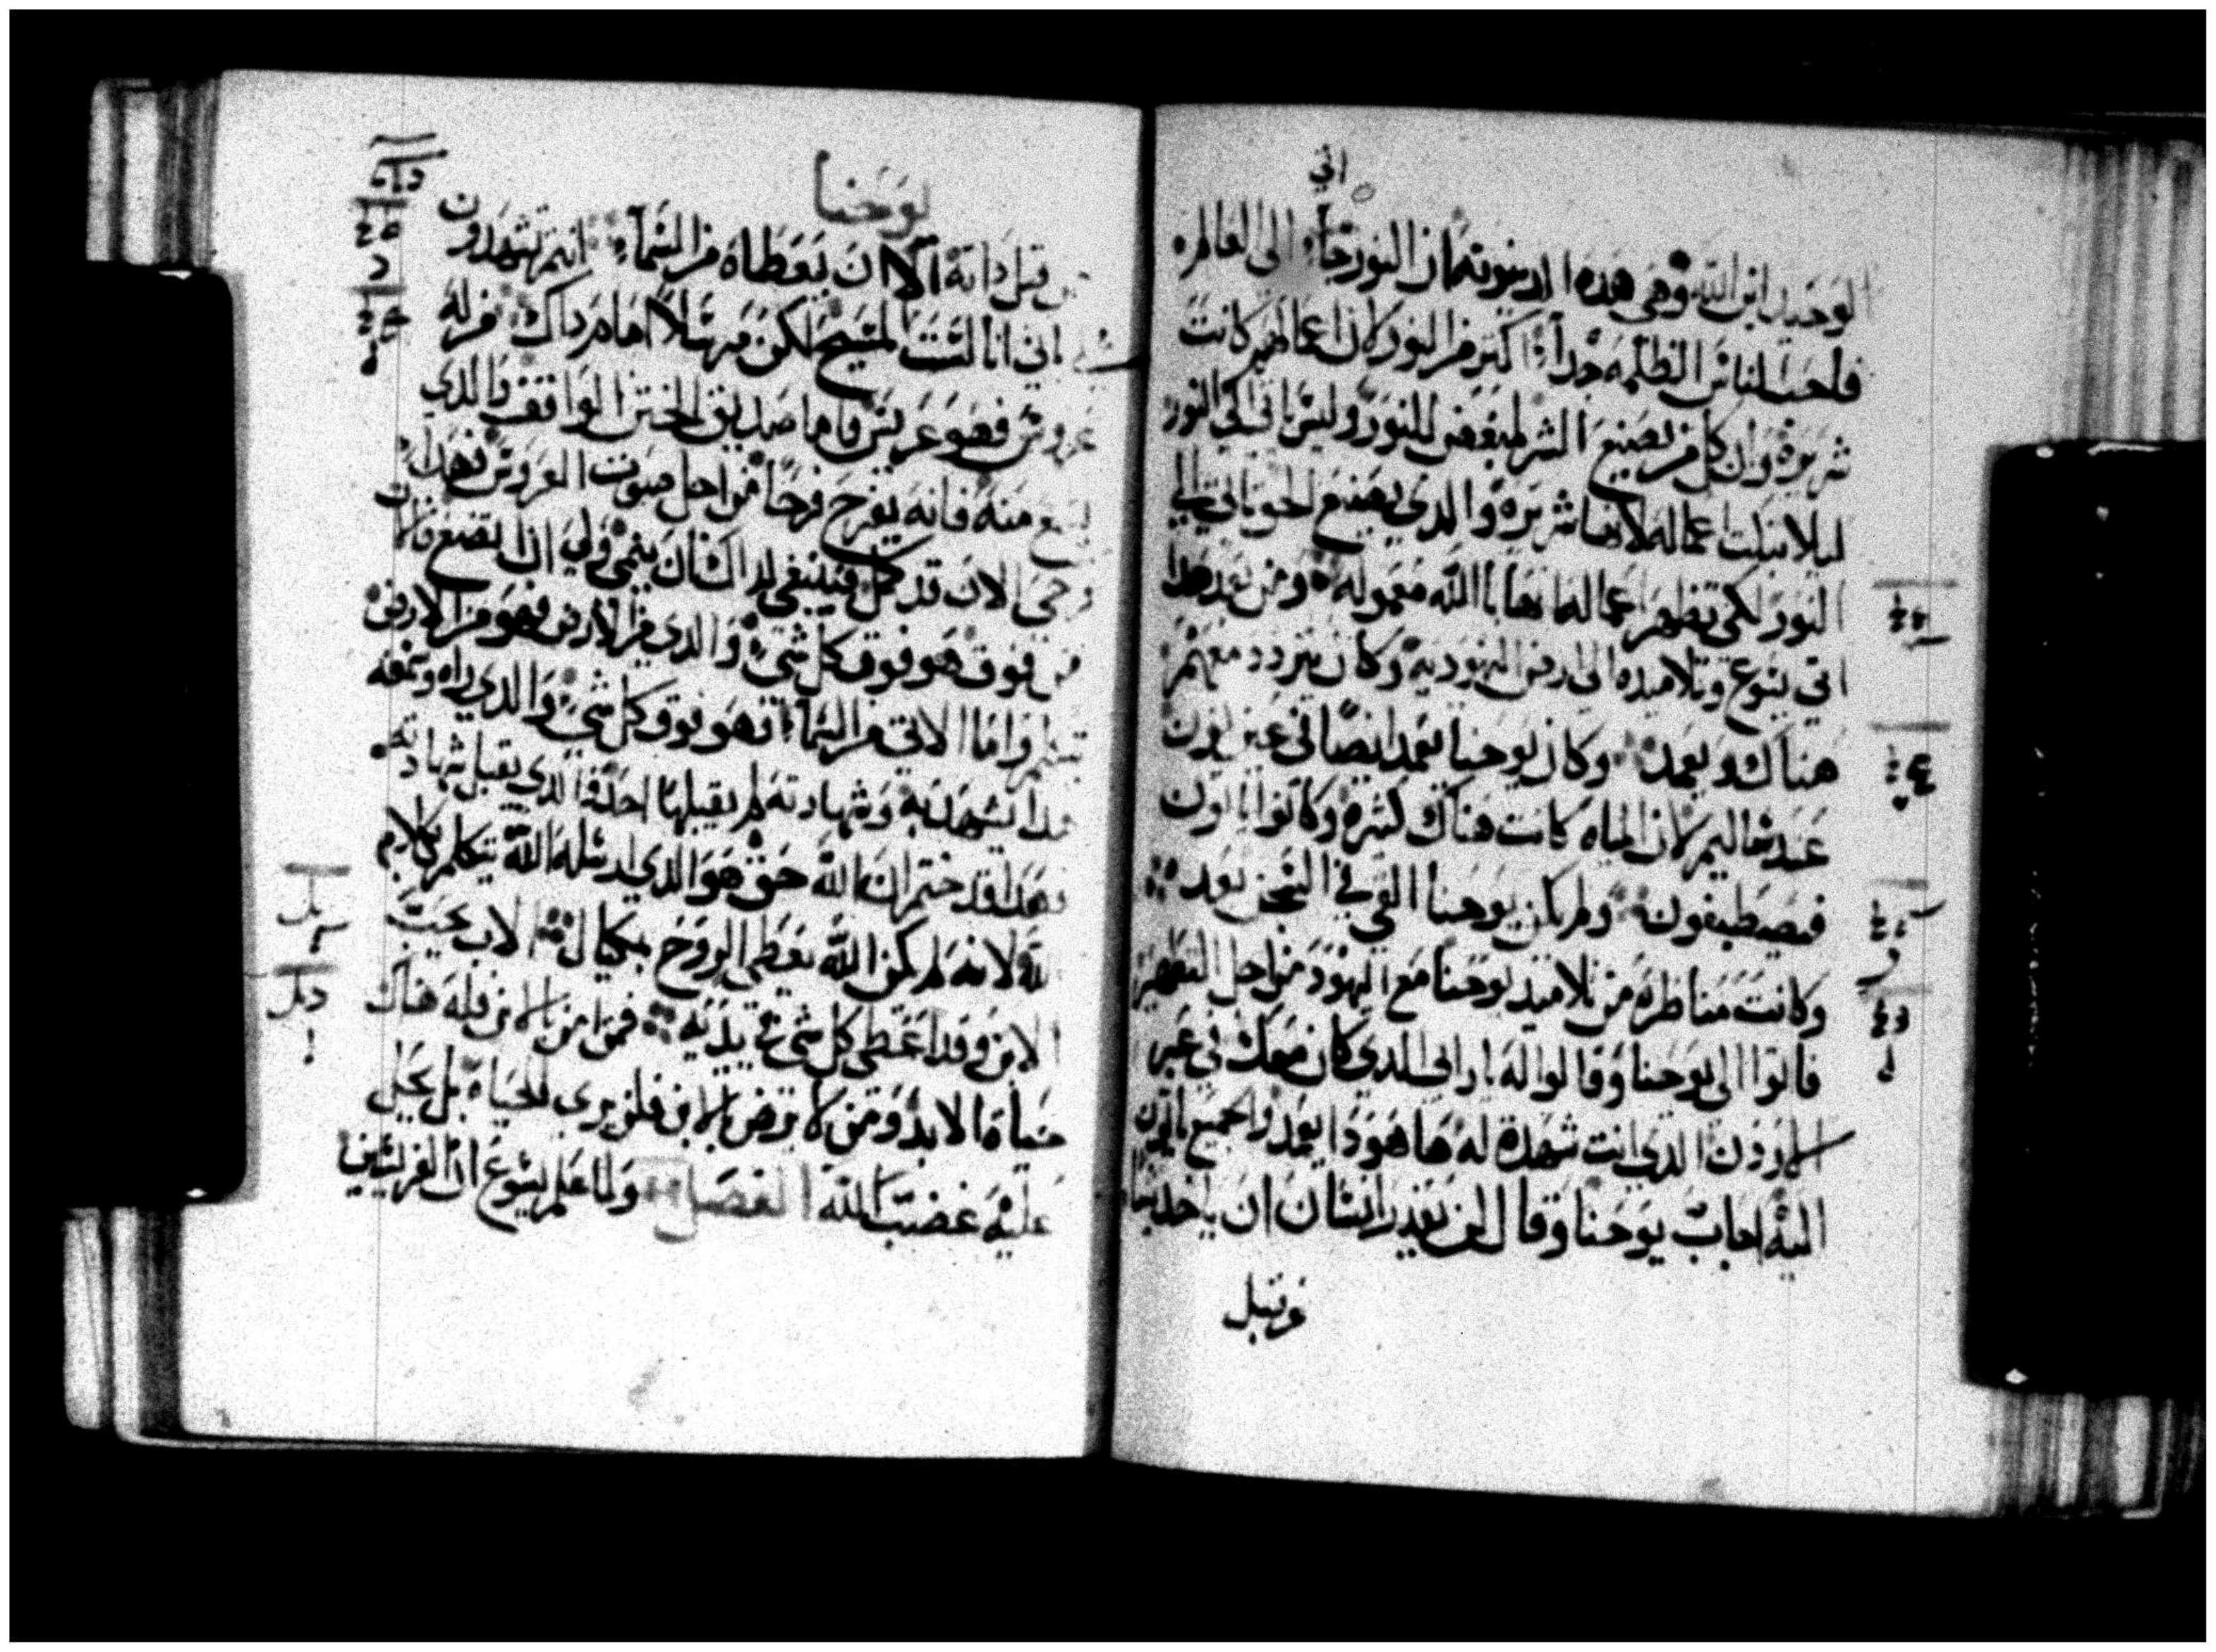 اني
الوحيد ابن الله وهي هده الدينونه ان النور جاء الى العالم
فاحب الناس الظلمه جداً اكتر من النور لان اعمالهم كانت
شريره وان كل من يصنع الشر يبغض النور وليس ياتي الى النور
ليلا تبكت اعماله لانها شريره والدي يصنع الحق ياتي الى
النور لكي تظهر اعماله انها بالله معموله ومن بعد هدا
اتى يسوع وتلاميده الى ارض اليهوديه وكان يتردد معهم
هناك ويعمد وكان يوحنا يعمد ايضاً في عين نون
عند شاليم لان المياه كانت هناك كتيره وكانوا ياتون
فيصطبغون ولم يكن يوحنا القي في السجن بعد
وكانت مناظره من تلاميد يوحنا مع اليهود من اجل التطهير
فاتوا الى يوحنا وقالوا له يا رابي الدي كان معك في عبر
الاردن الدي انت شهدة له ها هودا يعمد والجميع ياتون
اليه اجاب يوحنا وقال لن يقدر انسان ان ياخد شيا
من قبل
يوحنا
من قبل داته الا ان يعطاه من السماء انتم تشهدون
باني انا لست المسيح لكن مرسلاً امام داك من له
عروس فهو عريس فاما صديق الختن الواقف والدي
يسمع منه فانه يفرح فرحاً من اجل صوت العروس فهدا
فرحي الان قد كمل فينبغي لداك ان ينمي ولي ان اتضع فالات
من فوق هو فوق كل شيء والدي من الارض فهو من الارض
يتكلم واما الاتي من السماء فهو فوق كل شيء والدي راه وسمعه
بدا يشهد به وشهادته لم يقبلها احد فالدي يقبل شهادته
فهدا قد ختم ان الله حق هو الدي ارسله الله يتكلم بكلام
الله لانه لم يكن الله يعطي الروح بمكيال الاب يحب
الابن وقد اعطى كل شي في يديه فمن امن بالابن فله هناك
حياة الابد ومن لا يرض بالابن فلن يرى الحياه بل يحل
عليه غضب الله الفصل ولما علم يسوع ان الفريسين